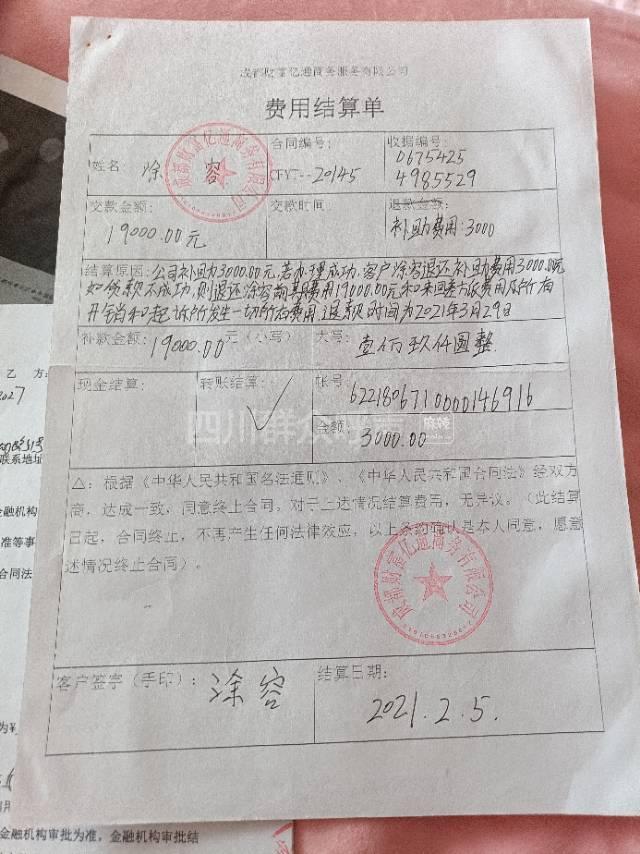 成都财富亿通商务服务有限公司
费用结算单
姓名 涂容
合同编号:
CFYT--20145
收据编号:
0675425
4985529
交款金额:
19000.00元
交款时间:
退款金额:
补助费用:3000
结算原因:公司补回为3000.00元,若办理成功,客户涂容退还补助费用3000.00元
如贷款不成功,则退还涂容前期费用19000.00元和来回差旅费用及所有
开销和起诉所发生一切所有费用,退款时间为2021年3月29日
补款金额:19000.00元(小写) 大写: 壹万玖仟圆整
现金结算:
转账结算: √
帐号
6221806710000146916
金额:
3000.00
△:根据《中华人民共和国名法通则》、《中华人民共和国合同法》经双方
商,达成一致,同意终止合同。对于上述情况结算费用,无异议。(此结算
日起,合同终止,不再产生任何法律效应,以上条约确认是本人同意,愿意
述情况终止合同)。
成都财富亿通商务服务有限公司
成都财富亿通商务服务有限公司
客户签字(手印): 涂容
结算日期:
2021.2.5.
四川群众呼声
麻辣
乙方:
2027
联系地址
金融机构
准等事
合同法
金融机构审批为准,金融机构审批结